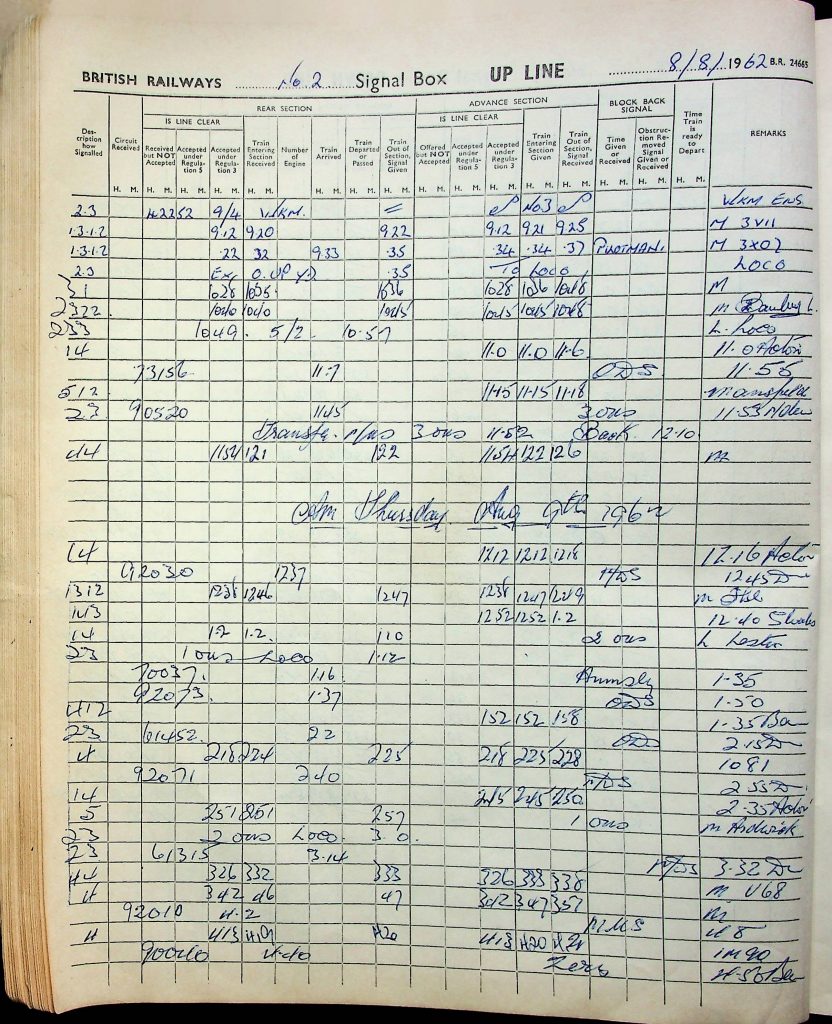 BRITISH RAILWAYS No 2 Signal Box UP LINE 8/8/1962 B.R. 24665
REAR SECTION ADVANCE SECTION BLOCK BACK SIGNAL
IS LINE CLEAR IS LINE CLEAR
Description how Signalled Circuit Received Received but NOT Accepted Accepted under Regulation 5 Accepted under Regulation 3 Train Entering Section Received Number of Engine Train Arrived Train Departed or Passed Train Out of Section, Signal Given Offered but NOT Accepted Accepted under Regulation 5 Accepted under Regulation 3 Train Entering Section Given Train Out of Section, Signal Received Time Given or Received Obstruction Removed Signal Given or Received Time Train is ready to Depart REMARKS
H. M. H. M. H. M. H. M. H. M. H. M. H. M. H. M. H. M. H. M. H. M. H. M. H. M. H. M. H. M. H. M.
2.3 H2252 9/4 WKM. No3 WKM ENS
1.3.1.2 9.12 9.20 9.22 9.12 9.21 9.25 M 3V11
1.3.1.2 .22 32 9.33 .35 .34 .34 .37 PILOTMAN. M 3X07
2.3 .35 To Loco LOCO
1028 1035 1036 1028 1036 1048 M
2322 1040 1040 1045 1045 1045 1048 m Banbury L.
233 1049. 5/2. 10.57 L. Loco
14 11.0 11.0 11.6 11.0 Acton
73156 11.7 ODS 11.55
512 11.15 11.15 11.18 mansfield
23 90520 1145 3 ons 11.53
Transfr. 3 ons 11.52 Back 12.10.
44 1154 121 122 1154 122 126 m
Am Thursday. Aug 9th 1962
14 1212 1212 1218 12.16 Acton
92030 1237 1245
1312 1238 1246 1247 1238 1247 1249 m
143 1252 1252 1.2 12.40
14 1.2 1.2. 110 2 ons L Lester
23 1 ons Loco 1.12
70037. 1.16 Annesly 1.35
92073. 1.37 ODS 1.50
412 152 152 158 1.35
23 61452. 22 ODS 215
4 218 224 225 218 225 228 1081
92071 240 255
14 245 245 250 2.35 Acton
5 251 251 257 1 ons m Ardwick
23 2 ons Loco. 3.0.
23 61315 3.14 3.32
44 326 332 333 326 333 338 m V68
4 342 46 47 342 347 357 m
92010 4.2 M.M.S 48
4 413 419 420 413 420 428 1M90
90040 440 Zero 4.50